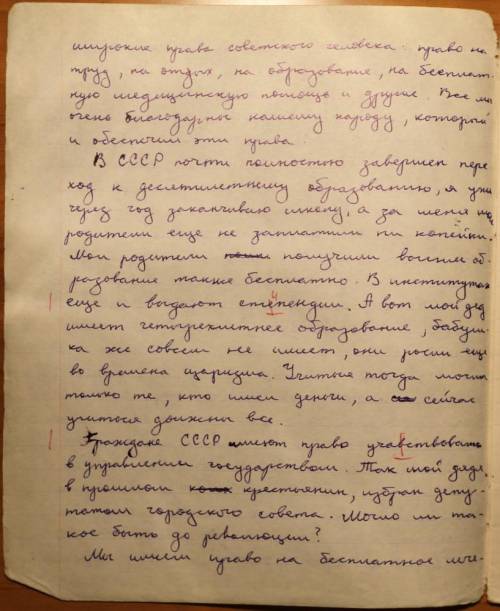 широкие права советского человека: право на
труд, на отдых, на образование, на бесплат-
ную медецинскую помощь и другие. Все мы
очень благодарные нашему народу, который
и обеспечил эти права.
В СССР почти полностью завершен пере
ход к десятилетнему образованию, я уже
через год заканчиваю школу, а за меня мои
родители еще не заплатили ни копейки.
Мои родители получили высшее об-
разование также бесплатно. В институтах
еще и выдают степендии. А вот мой дед
имеет четырехлетнее образование, бабуш-
ка же совсем не имеет, они росли еще
во времена царизма. Учиться тогда могли
только те, кто имел деньги, а сейчас
учиться должны все.
Граждане СССР имеют право учавствовать
в управлении государством. Так мой дядя,
в прошлом крестьянин, избран депу-
татом городского совета. Могло ли та-
кое быть до революции?
Мы имеем право на бесплатное лече-